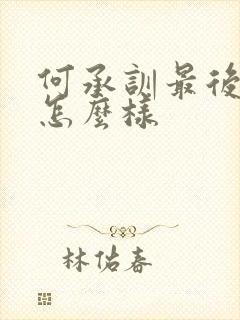 何承訓最後
怎麼樣
林佑春